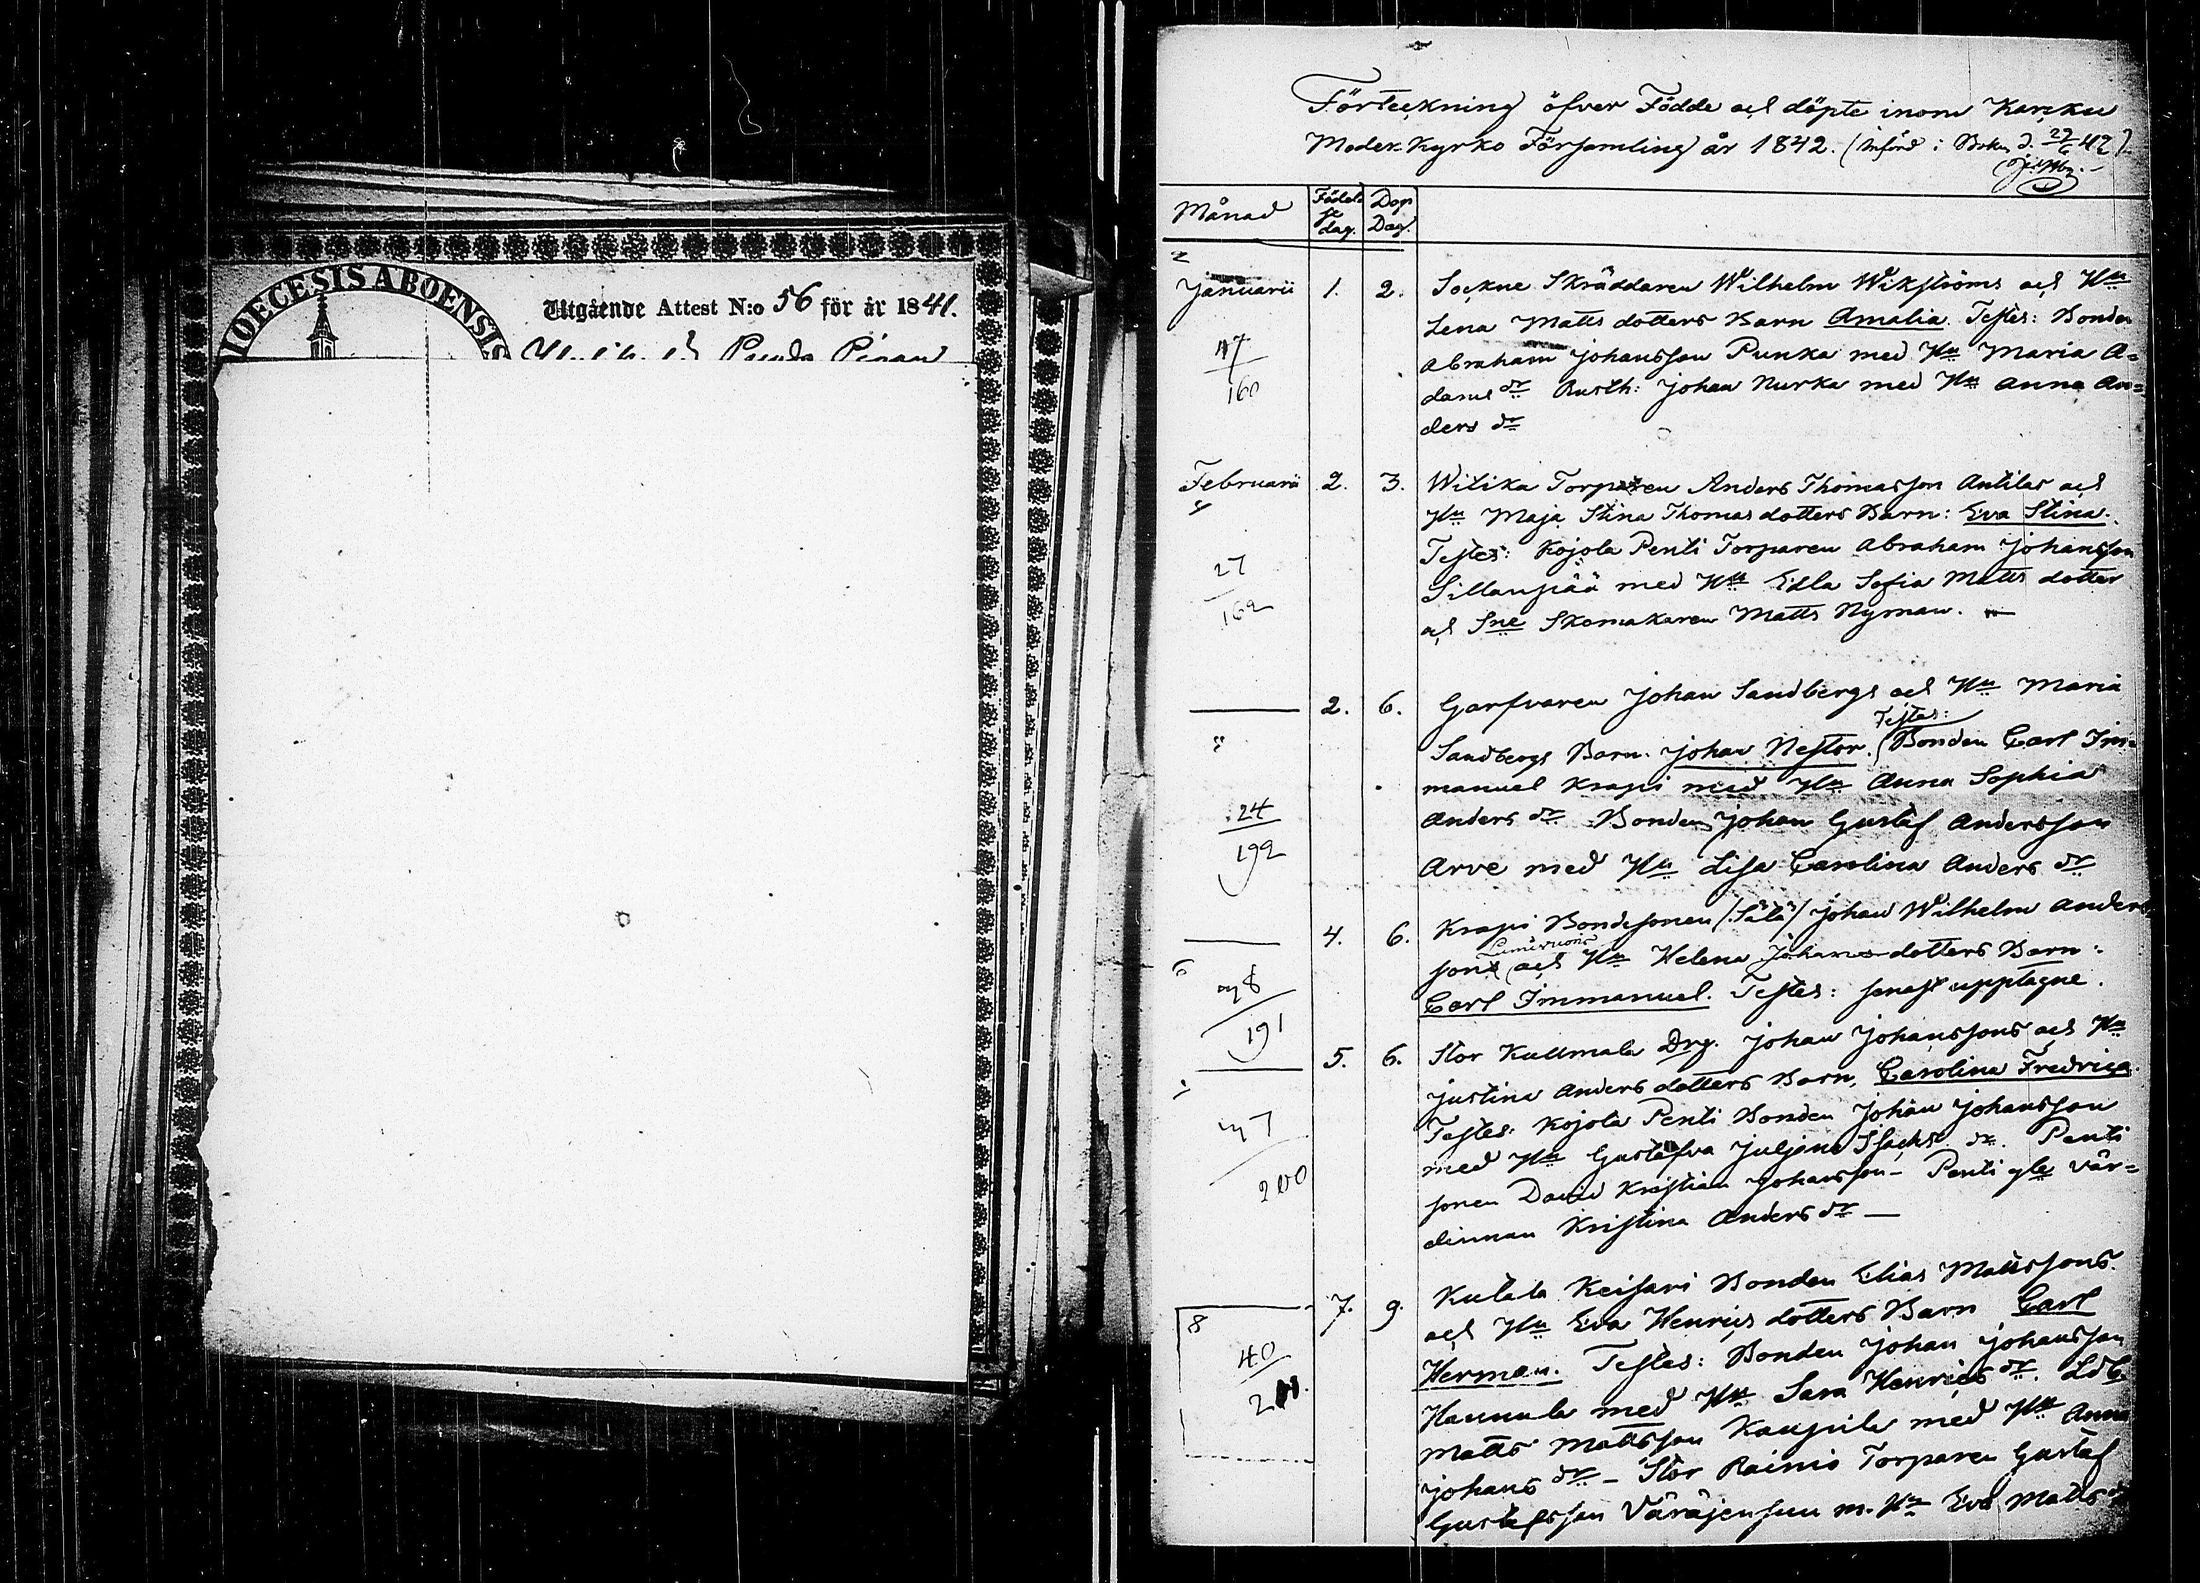 DIOECESIS ABOENSIS
Utgående Attest N:o 56 för år 1841.
Förteckning öfver Födde och döpte inom Karcku
Moder Kyrko Församling år 1842. (införd i Boken d. 29/6 42).
Månad
Födelse dag.
Dop Dag.
2
Januarii 1. 2. Sockne Skräddaren Wilhelm Wikströms och Hu
Lena Matts dotters Barn Amalia. Testes: Bonden
Abraham Johansson Punka med Hu Maria A=
dams dr Rusth: Johan Nurka med Hu Anna An=
ders dr
160
Februarii 2. 3. Witika Torparen Anders Thomasson Antilas och
Hu Maja Stina Thomas dotters Barn: Eva Stina.
Testes: Kojola Penti Torparen Abraham Johansson
Sillanpää med Hu Edla Sofia Matts dotter
och Sne Skomakaren Matts Nyman.
27
162
2. 6. Garfvaren Johan Sandbergs och Hu Maria
Testes:
Sandbergs Barn: Johan Nestor. Bonden Carl Im-
manuel Krapi med Hu Anna Sophia
Anders dr Bonden Johan Gustaf Andersson
Arve med Hu Lisa Carolina Anders dr
24
192
4. 6. Krapi Bondesonen /: Sälä / Johan Wilhelm Anders
sons och Hu Helena Johans dotters Barn:
Carl Immanuel. Testes: senast upptagne.
6
191
5. 6. Stor Kullmala Drg. Johan Johanssons och Hu
Justina Anders dotters Barn, Carolina Fredrica.
Testes: Kojola Penti Bonden Johan Johansson
med Hu Gustafva Juljana Isacks dr. Penti
sonen David Kristian Johansson - Penti gle vär=
dinnan Kristina Anders dr —
200
7. 9. Kutala Keisari Bonden Elias Mattssons
och Hu Eva Henrics dotters Barn Carl
Herman. Testes: Bonden Johan Johansson
Hannula med Hu Sara Henrics dr. Ldb.
Matts Mattsson Kaupila med Hu Anna
Johans dr - Stor Rainio Torparen Gustaf
Gustafsson Väräjensuu m. Hu Eva Matts dr
8
40